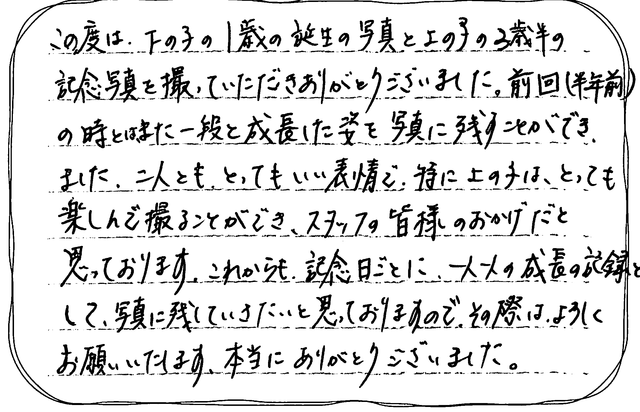 この度は、下の子の1歳の誕生の写真と上の子の3歳半の
記念写真を撮っていただきありがとうございました。前回(半年前)
の時とはまた一段と成長した姿を写真に残すことができ、
ました。二人とも、とってもいい表情で、特に上の子は、とっても
楽しんで撮ることができ、スタッフの皆様のおかげだと
思っております。これからも、記念日ごとに、一人一人の成長の記録と
して、写真に残していきたいと思っておりますので、その際は、よろしく
お願いいたします。本当にありがとうございました。